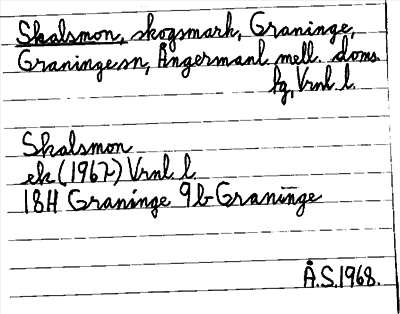 Skalsmon, skogsmark, Graninge,
Graningesn, Ångermanl. mell. doms
kg, Vrnl. l.
Skalsmon
ek (1967) Vrnl. l.
18H Graninge 9b Graninge
Å.S. 1968.